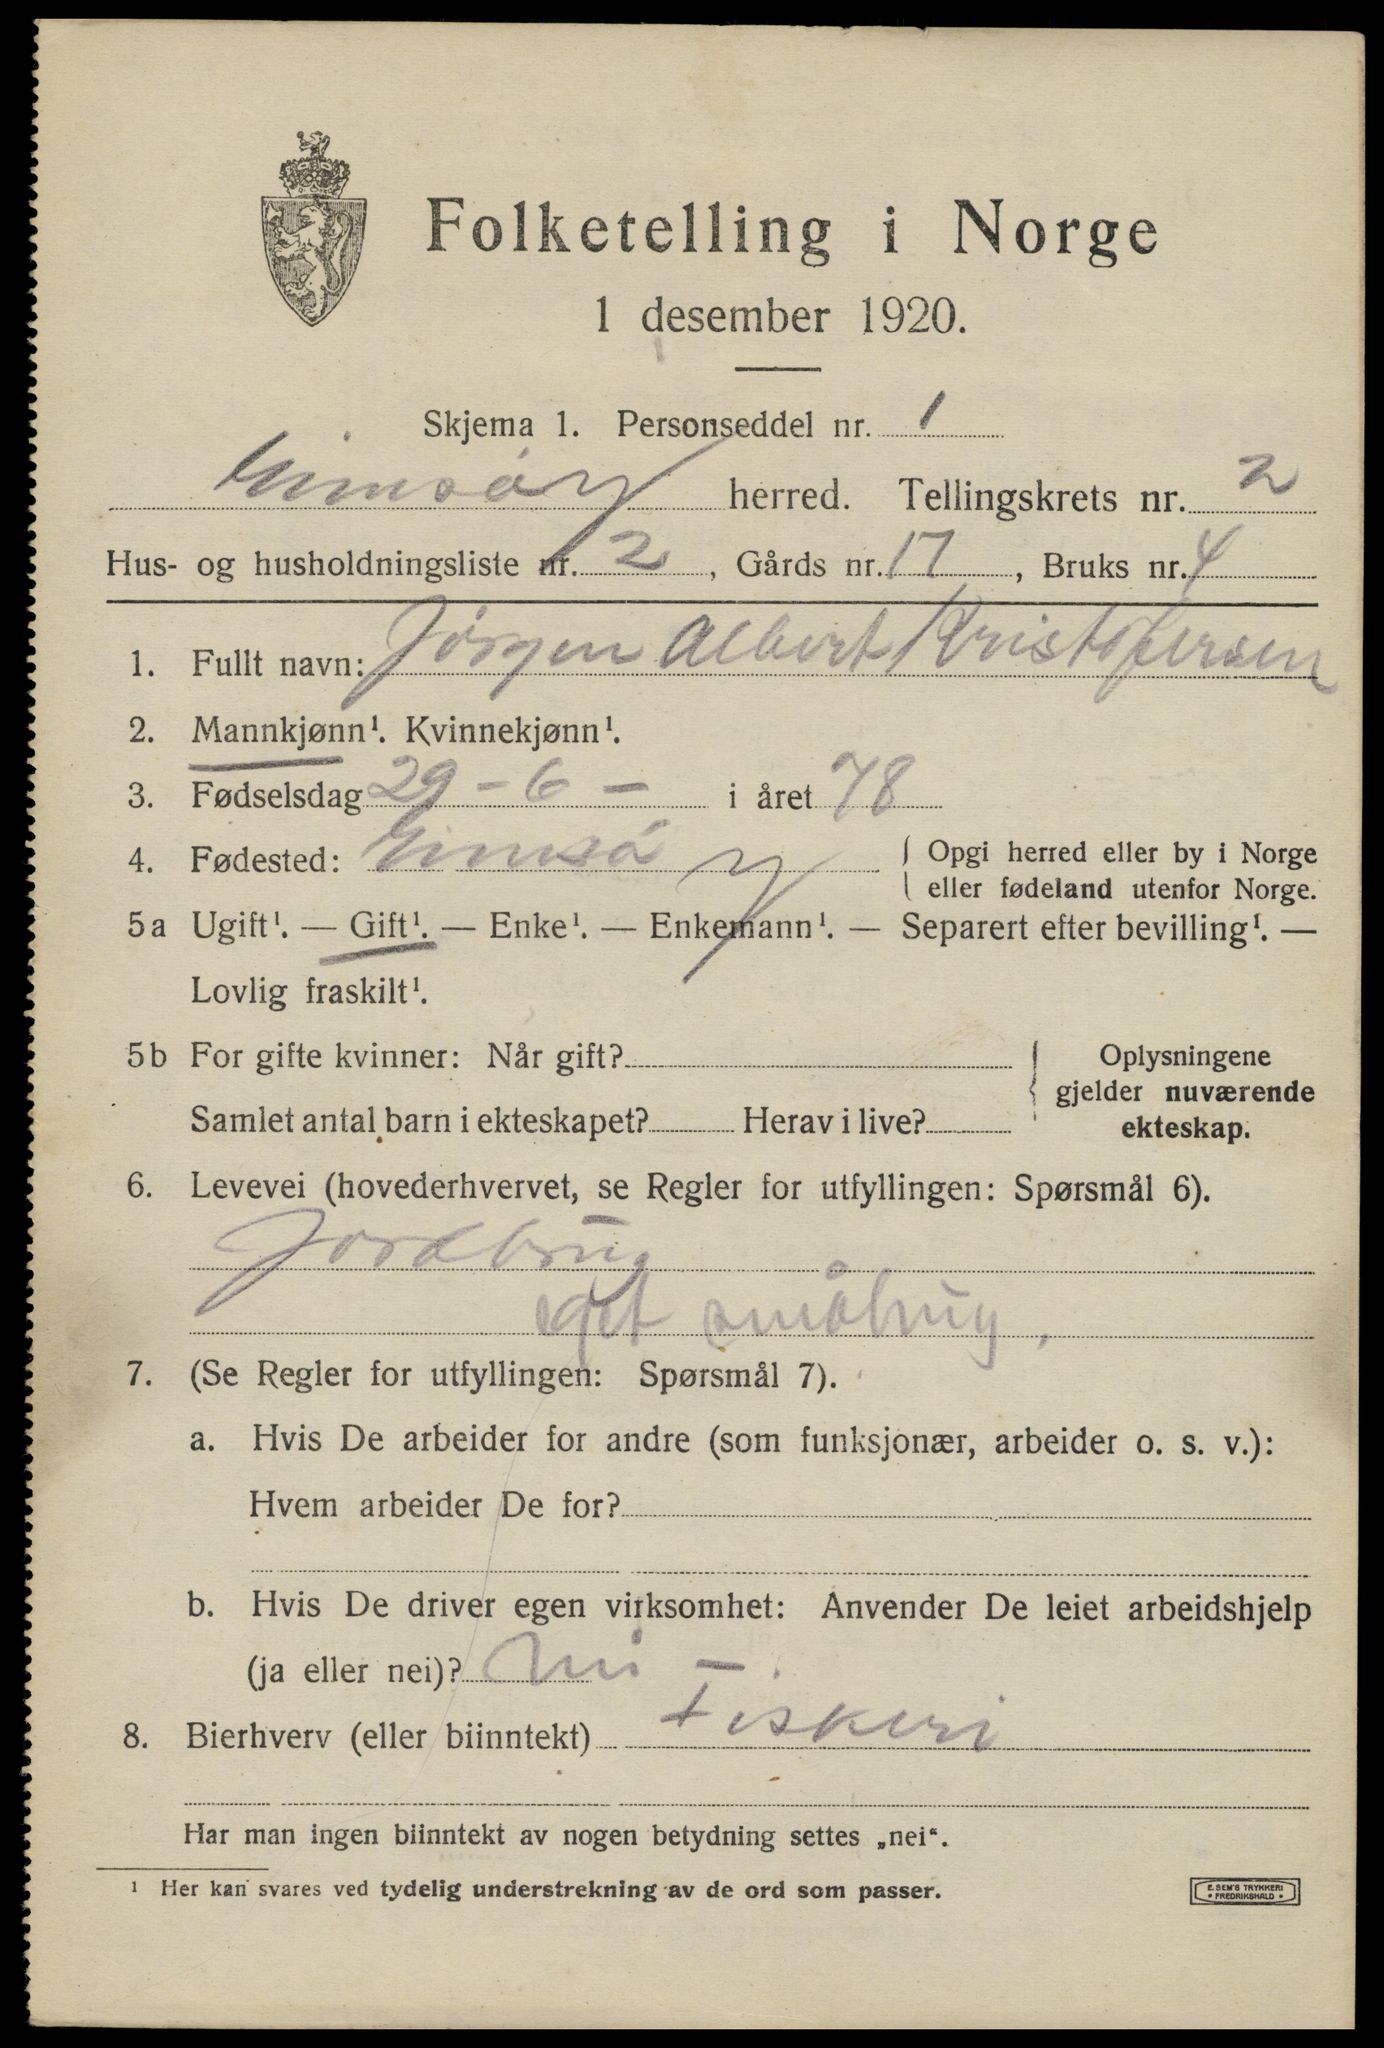 Folketelling i Norge
1 desember 1920.
Skjema 1. Personseddel nr. 1
Gimsøy herred. Tellingskrets nr. 2
Hus- og husholdningsliste nr. 2, Gårds nr. 17, Bruks nr. 4
1. Fullt navn: Jørgen Albert Kristofersen
2. Mannkjønn¹. Kvinnekjønn¹.
3. Fødselsdag 29-6- i året 78
4. Fødested: Gimsøy { Opgi herred eller by i Norge
eller fødeland utenfor Norge.
5a Ugift¹. — Gift¹. — Enke¹. — Enkemann¹. — Separert efter bevilling¹. —
Lovlig fraskilt¹.
5b For gifte kvinner: Når gift?
Samlet antal barn i ekteskapet? Herav i live?
{ Oplysningene
gjelder nuværende
ekteskap.
6. Levevei (hovederhvervet, se Regler for utfyllingen: Spørsmål 6).
Jordbrug
eget småbrug,
7. (Se Regler for utfyllingen: Spørsmål 7).
a. Hvis De arbeider for andre (som funksjonær, arbeider o. s. v.):
Hvem arbeider De for?
b. Hvis De driver egen virksomhet: Anvender De leiet arbeidshjelp
(ja eller nei)? nei
8. Bierhverv (eller biinntekt) Fiskeri
Har man ingen biinntekt av nogen betydning settes „nei“.
¹ Her kan svares ved tydelig understrekning av de ord som passer.
E. SEM'S TRYKKERI
• FREDRIKSHALD •